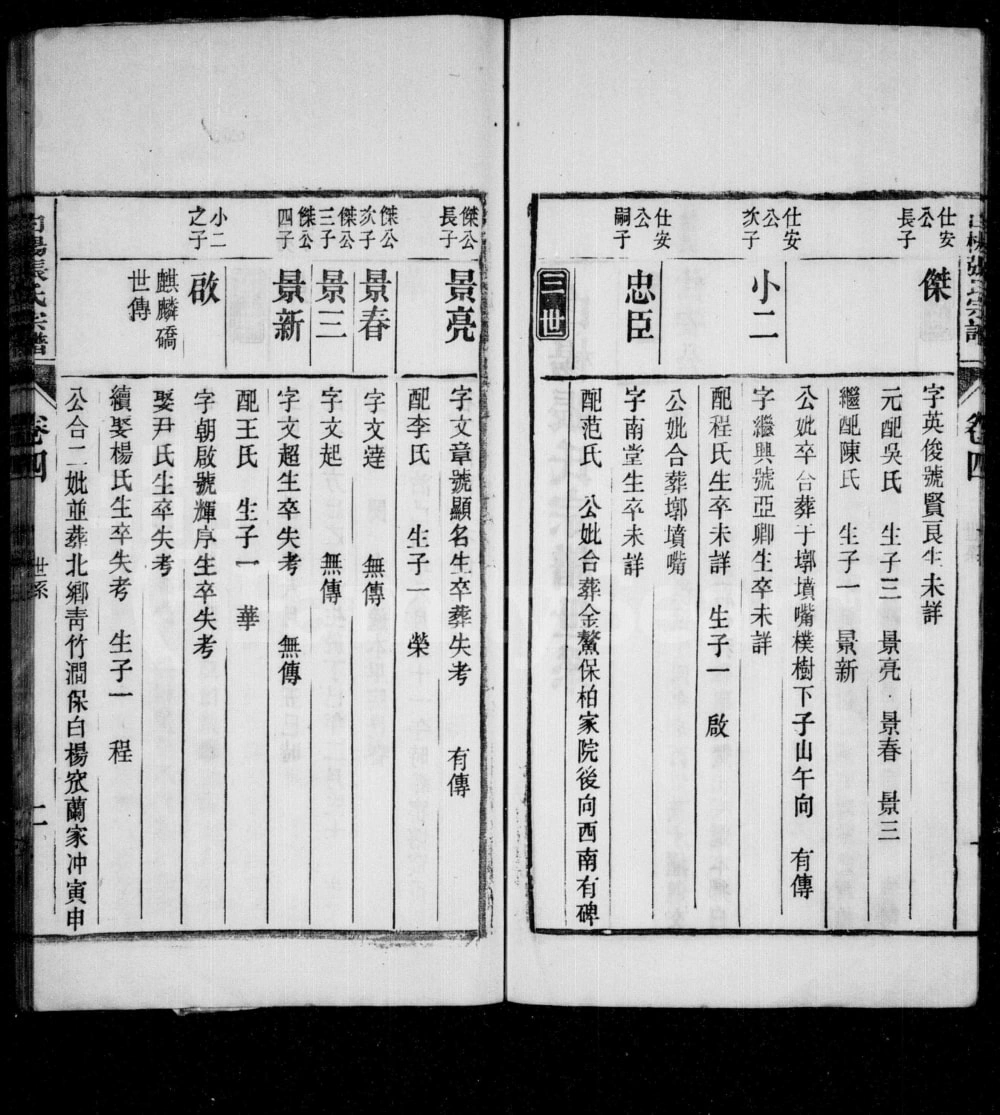 白楊張氏宗譜 卷四
仕安公長子
傑
字英俊號賢良生未詳
元配吳氏 生子三 景亮 景春 景三
繼配陳氏 生子一 景新
公妣卒合葬于墎墳嘴樸樹下子山午向 有傳
仕安公次子
小二
字繼興號亞卿生卒未詳
配程氏生卒未詳 生子一 啟
公妣合葬墎墳嘴
仕安公嗣子
忠臣
字南堂生卒未詳
配范氏 公妣合葬金鰲保柏家院後向西南有碑
三世
傑公長子
景亮
字文章號顯名生卒葬失考 有傳
配李氏 生子一 榮
傑公次子
景春
字文達 無傳
傑公三子
景三
字文起 無傳
傑公四子
景新
字文超生卒失考 無傳
配王氏 生子一 華
小二之子
啟
字朝啟號輝序生卒失考
麒麟礄世傳
娶尹氏生卒失考
續娶楊氏生卒失考 生子一 程
公合二妣並葬北鄉靑竹澗保白楊㳄蘭家冲寅申
白楊張氏宗譜 卷四 世系 二